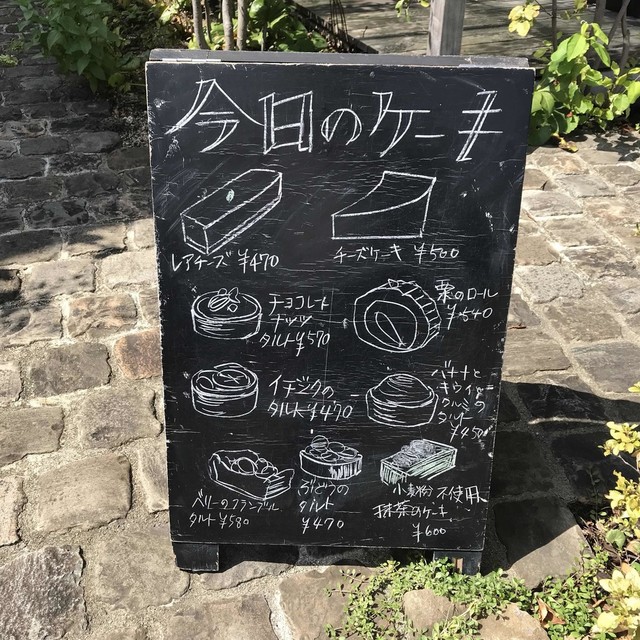 今日のケーキ
レアチーズ ¥470
チーズケーキ ¥500
チョコレート
ナッツ
タルト ¥570
栗のロール
¥540
イチジクの
タルト ¥470
バナナと
キウイと
クルミの
タルト
¥450
ベリーのクランブル
タルト ¥580
ぶどうの
タルト
¥470
小麦粉不使用
抹茶のケーキ
¥600